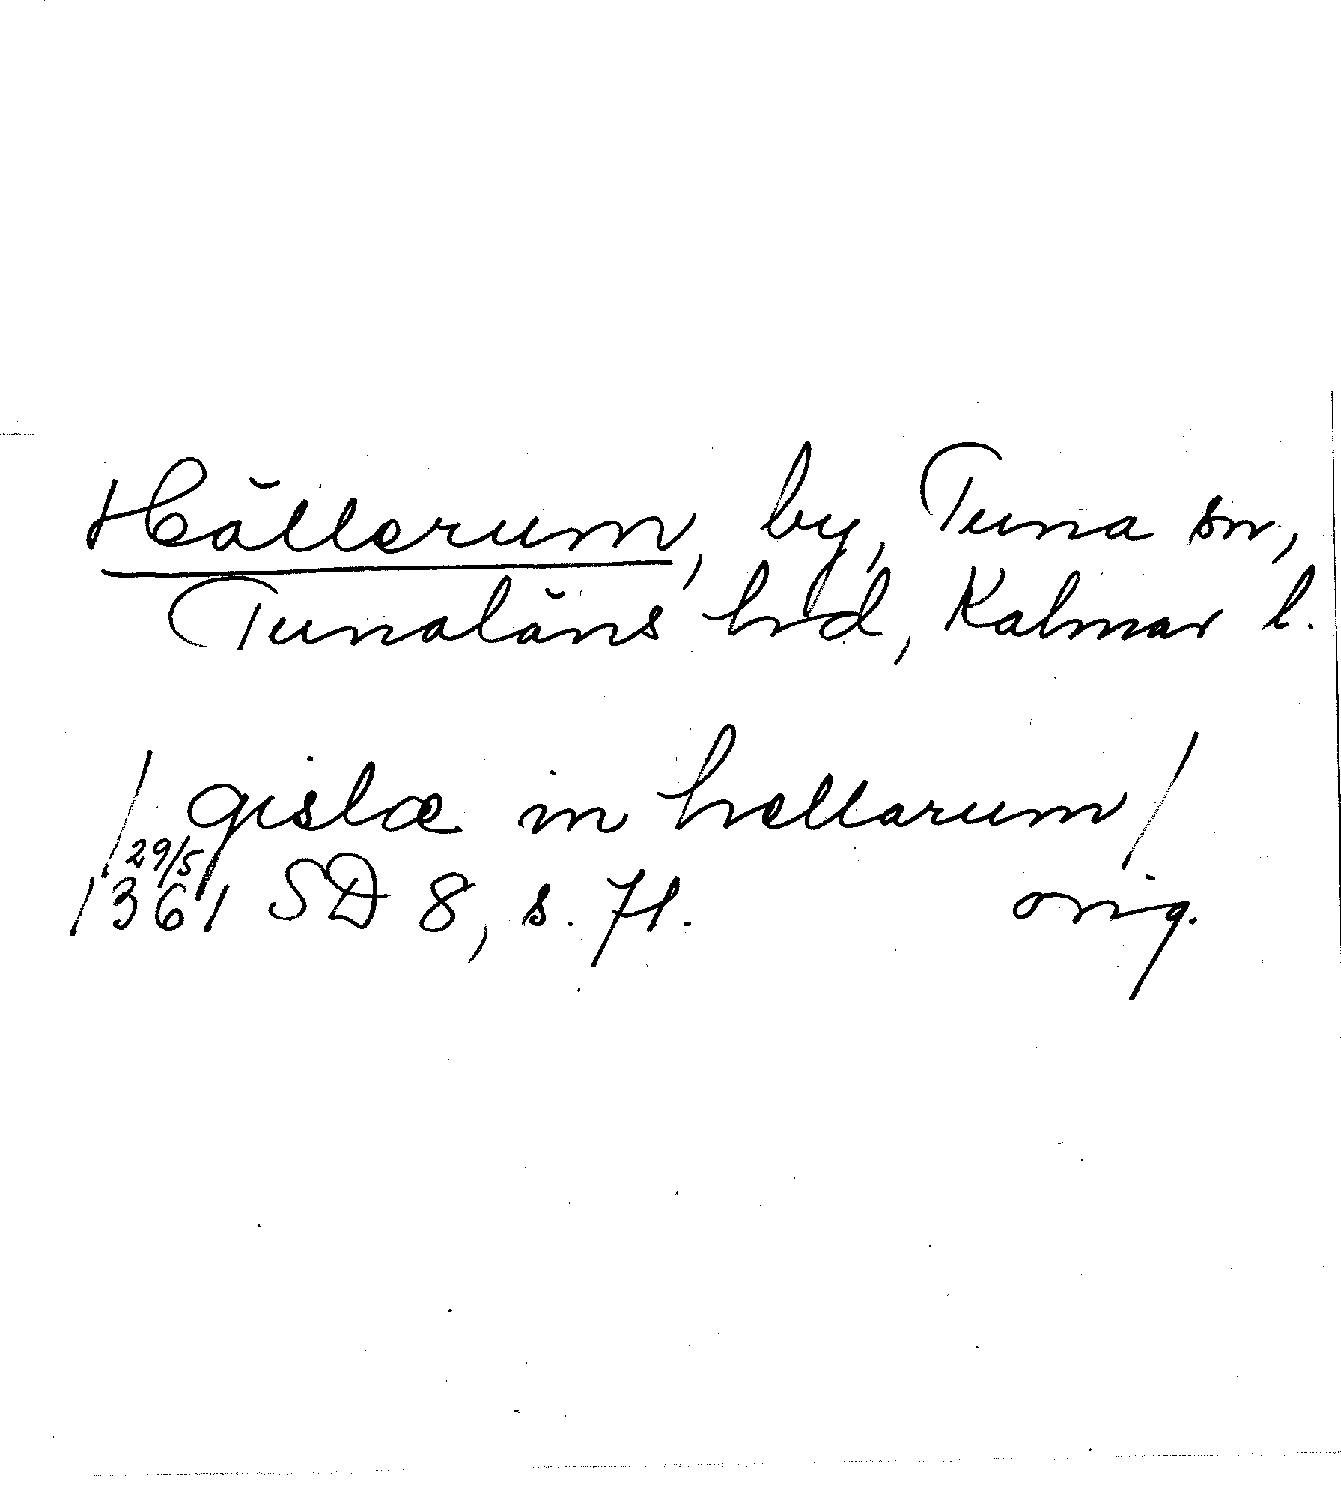 Hällerum, by, Tuna sn,
Tunaläns hd, Kalmar l.
/gislæ in hællarum/
29/5
1361 SD 8, s. 71. orig.